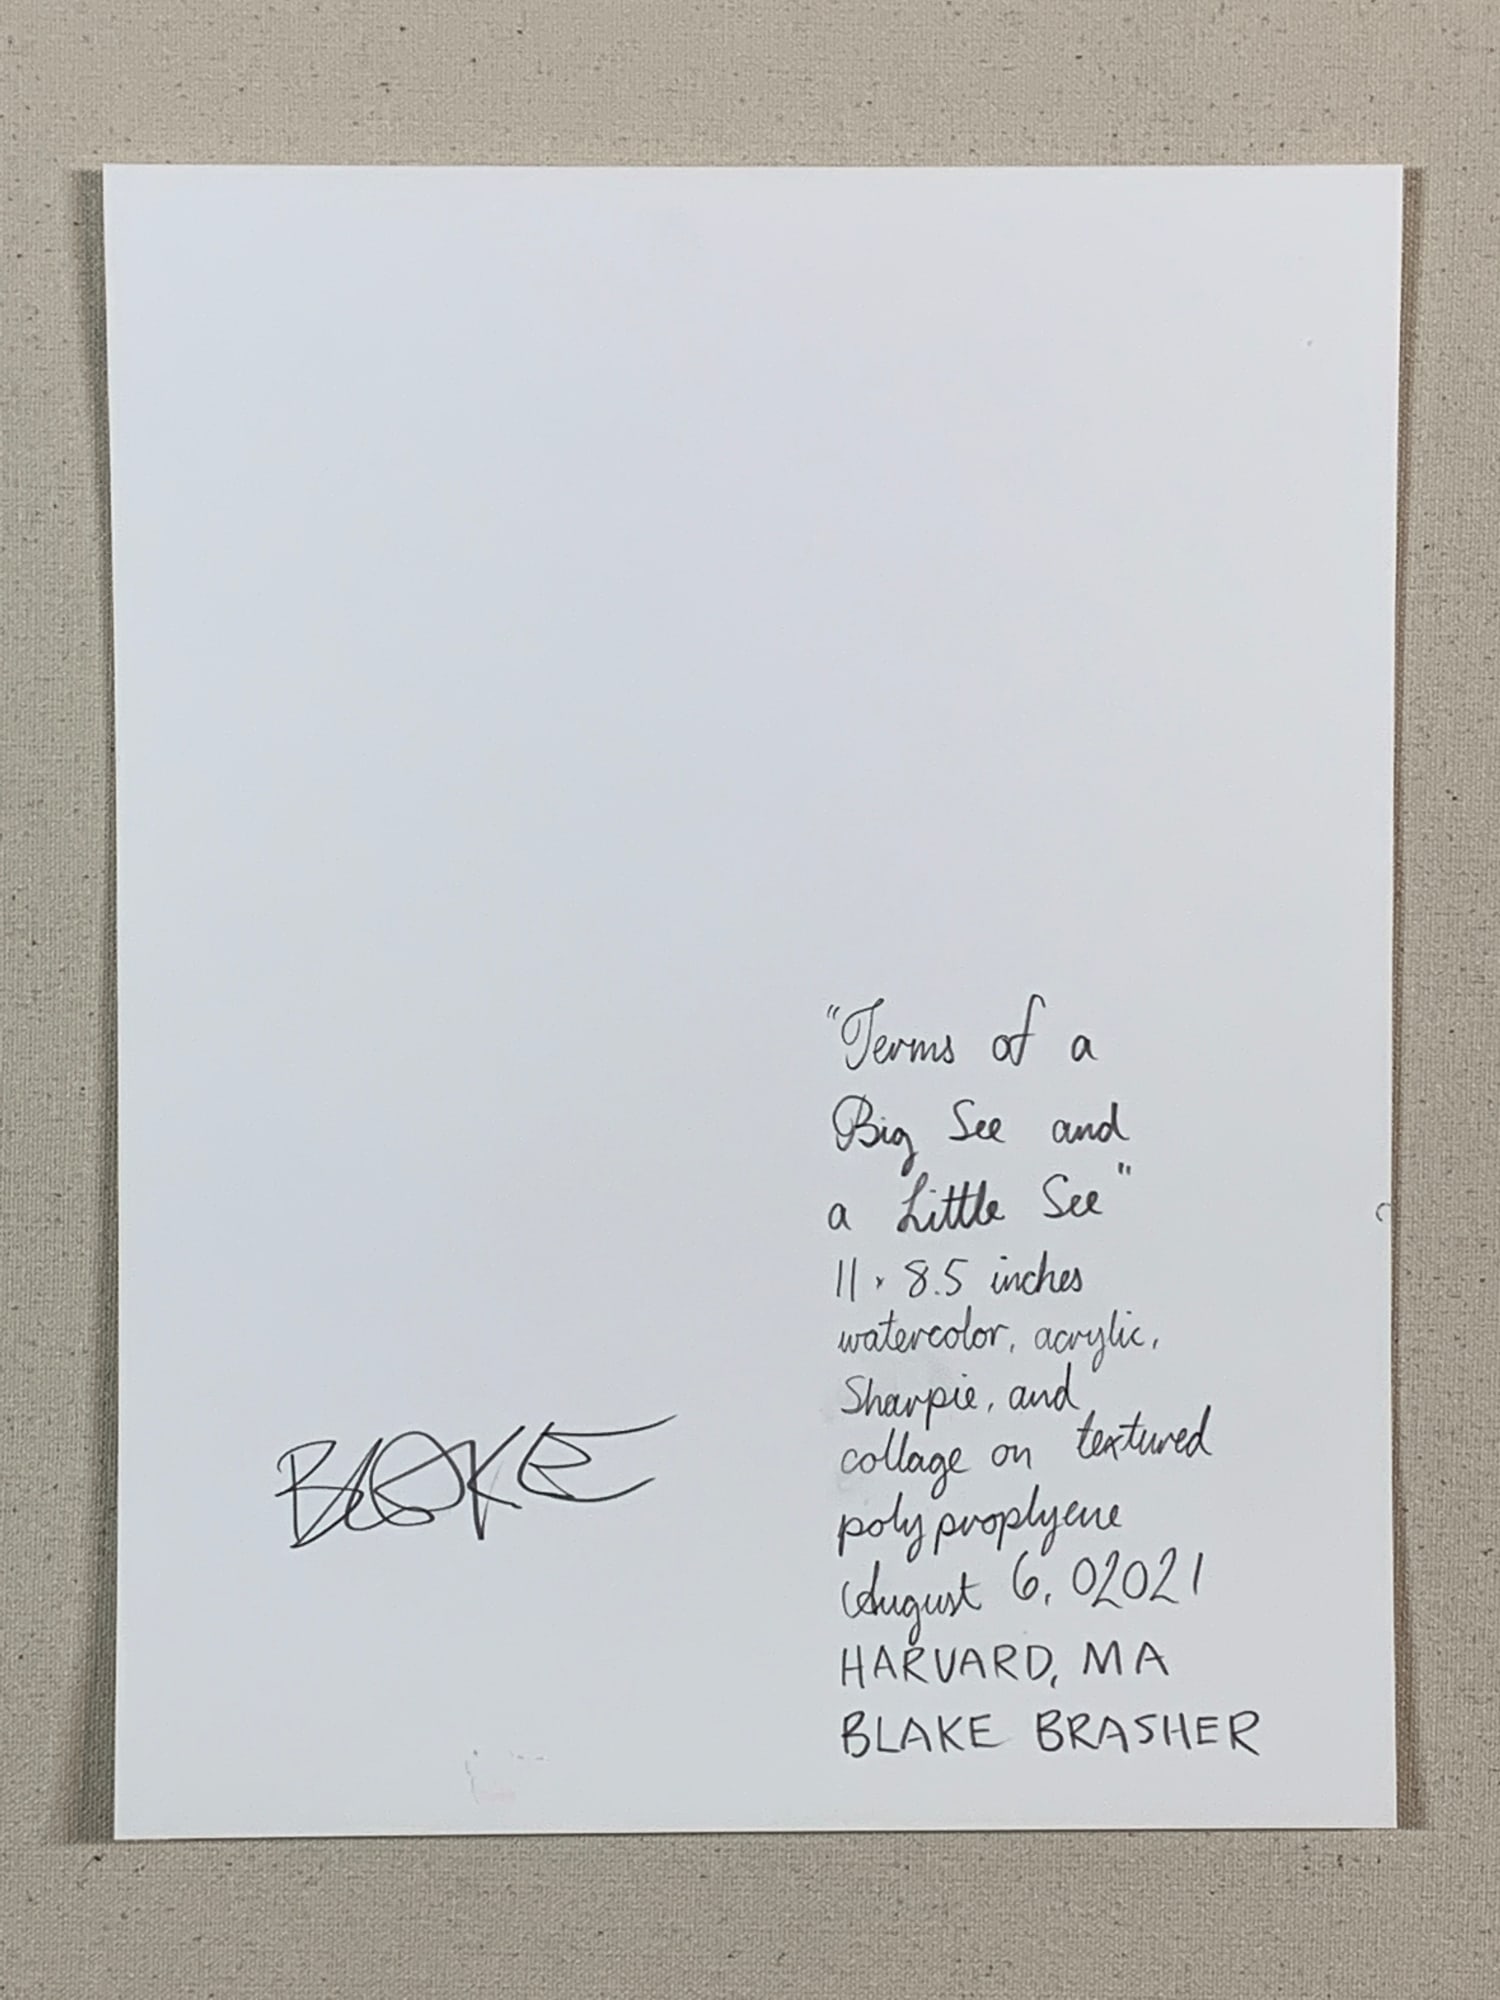 "Terms of a
Big See and
a Little See"
11 x 8.5 inches
watercolor, acrylic,
Sharpie, and
collage on textured
polyproplyene
August 6, 02021
HARVARD, MA
BLAKE BRASHER
BLAKE